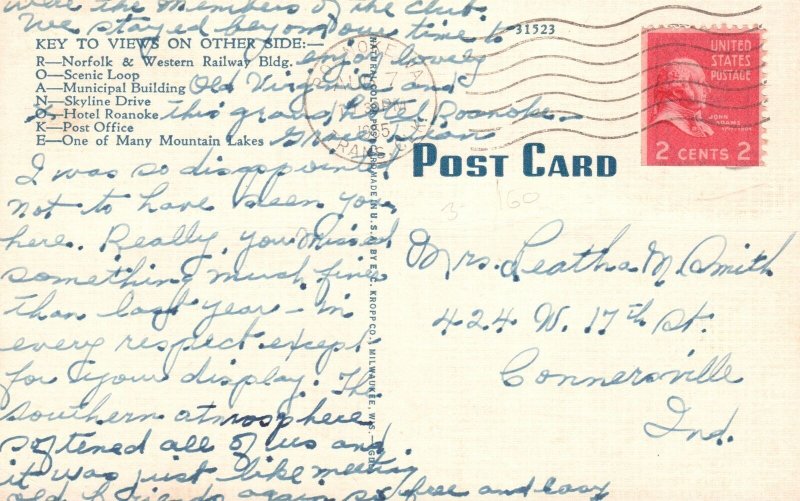 were the members of the club.
We stayed beyond our time to
enjoy lovely
Old Virginia and
this grand Hotel Roanoke.
KEY TO VIEWS ON OTHER SIDE:—
R—Norfolk & Western Railway Bldg.
O—Scenic Loop
A—Municipal Building
N—Skyline Drive
O—Hotel Roanoke
K—Post Office
E—One of Many Mountain Lakes
I was so disappointed
not to have seen you
here. Really, you missed
something much finer
than last year – in
every respect except
for your display. The
southern atmosphere
softened all of us and
it was just like meeting
old friends again so free and easy
NATURAL COLOR POST CARD MADE IN U.S.A. BY E. C. KROPP CO., MILWAUKEE, WIS.
31523
POST CARD
UNITED
STATES
POSTAGE
JOHN
ADAMS
2 CENTS 2
ROANOKE VA
PM
TRANSIT
160
Mrs. Leatha M. Smith
424 W. 17th St.
Connersville
Ind.